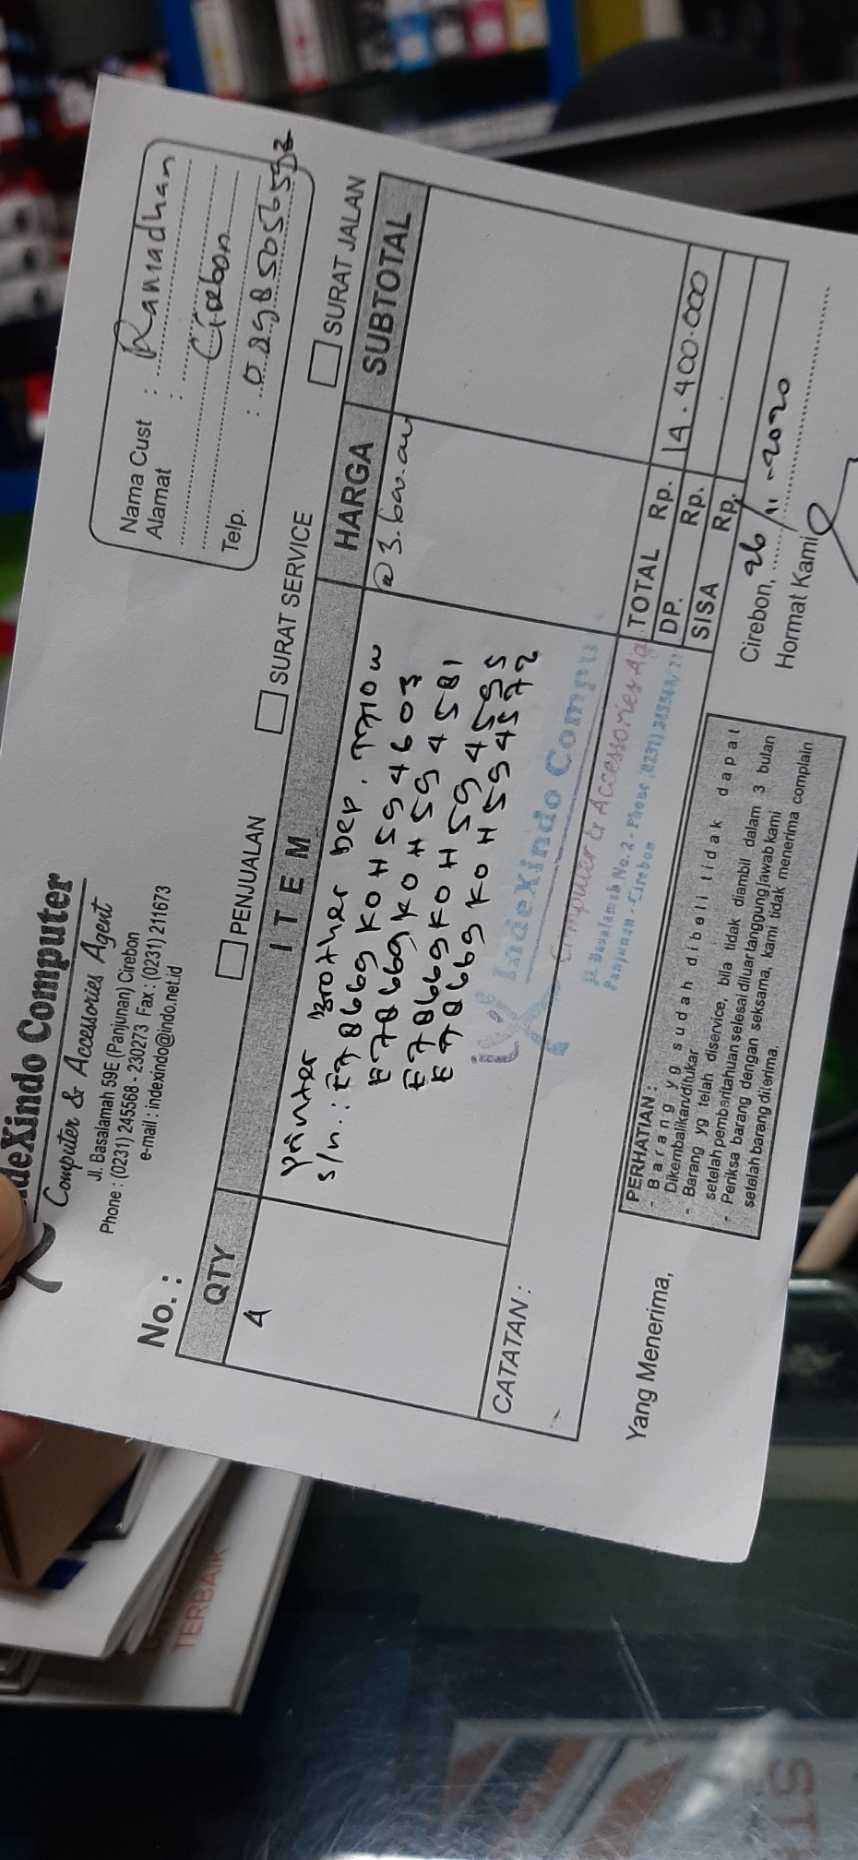 deXindo Computer
Computer & Accessories Agent
Jl. Basalamah 59E (Panjunan) Cirebon
Phone : (0231) 245568 - 230273 Fax : (0231) 211673
e-mail : indexindo@indo.net.id
Nama Cust : Ramadhan
Alamat : Cirebon
Telp. :
No. :
PENJUALAN SURAT SERVICE SURAT JALAN
QTY ITEM HARGA SUBTOTAL
4 Printer Brother Dcp. T710W @ 3.600.000
S/n. : E78669K0H594603
E78669K0H594581
E78669K0H594595
E78669K0H594572
IndeXindo Compu
Computer & Accessories Ag
Jl. Basalamah No. 2 - Phone
Panjunan - Cirebon
CATATAN :
TOTAL Rp. 14.400.000
DP. Rp.
SISA Rp.
PERHATIAN :
- Barang yg sudah dibeli tidak dapat
Dikembalikan/ditukar
- Barang yg telah diservice, bila tidak diambil dalam 3 bulan
setelah pemberitahuan selesai diluar tanggung jawab kami
- Periksa barang dengan seksama, kami tidak menerima complain
setelah barang diterima.
Cirebon, 26/11-2020
Yang Menerima,
Hormat Kami
TERBAIK
ST